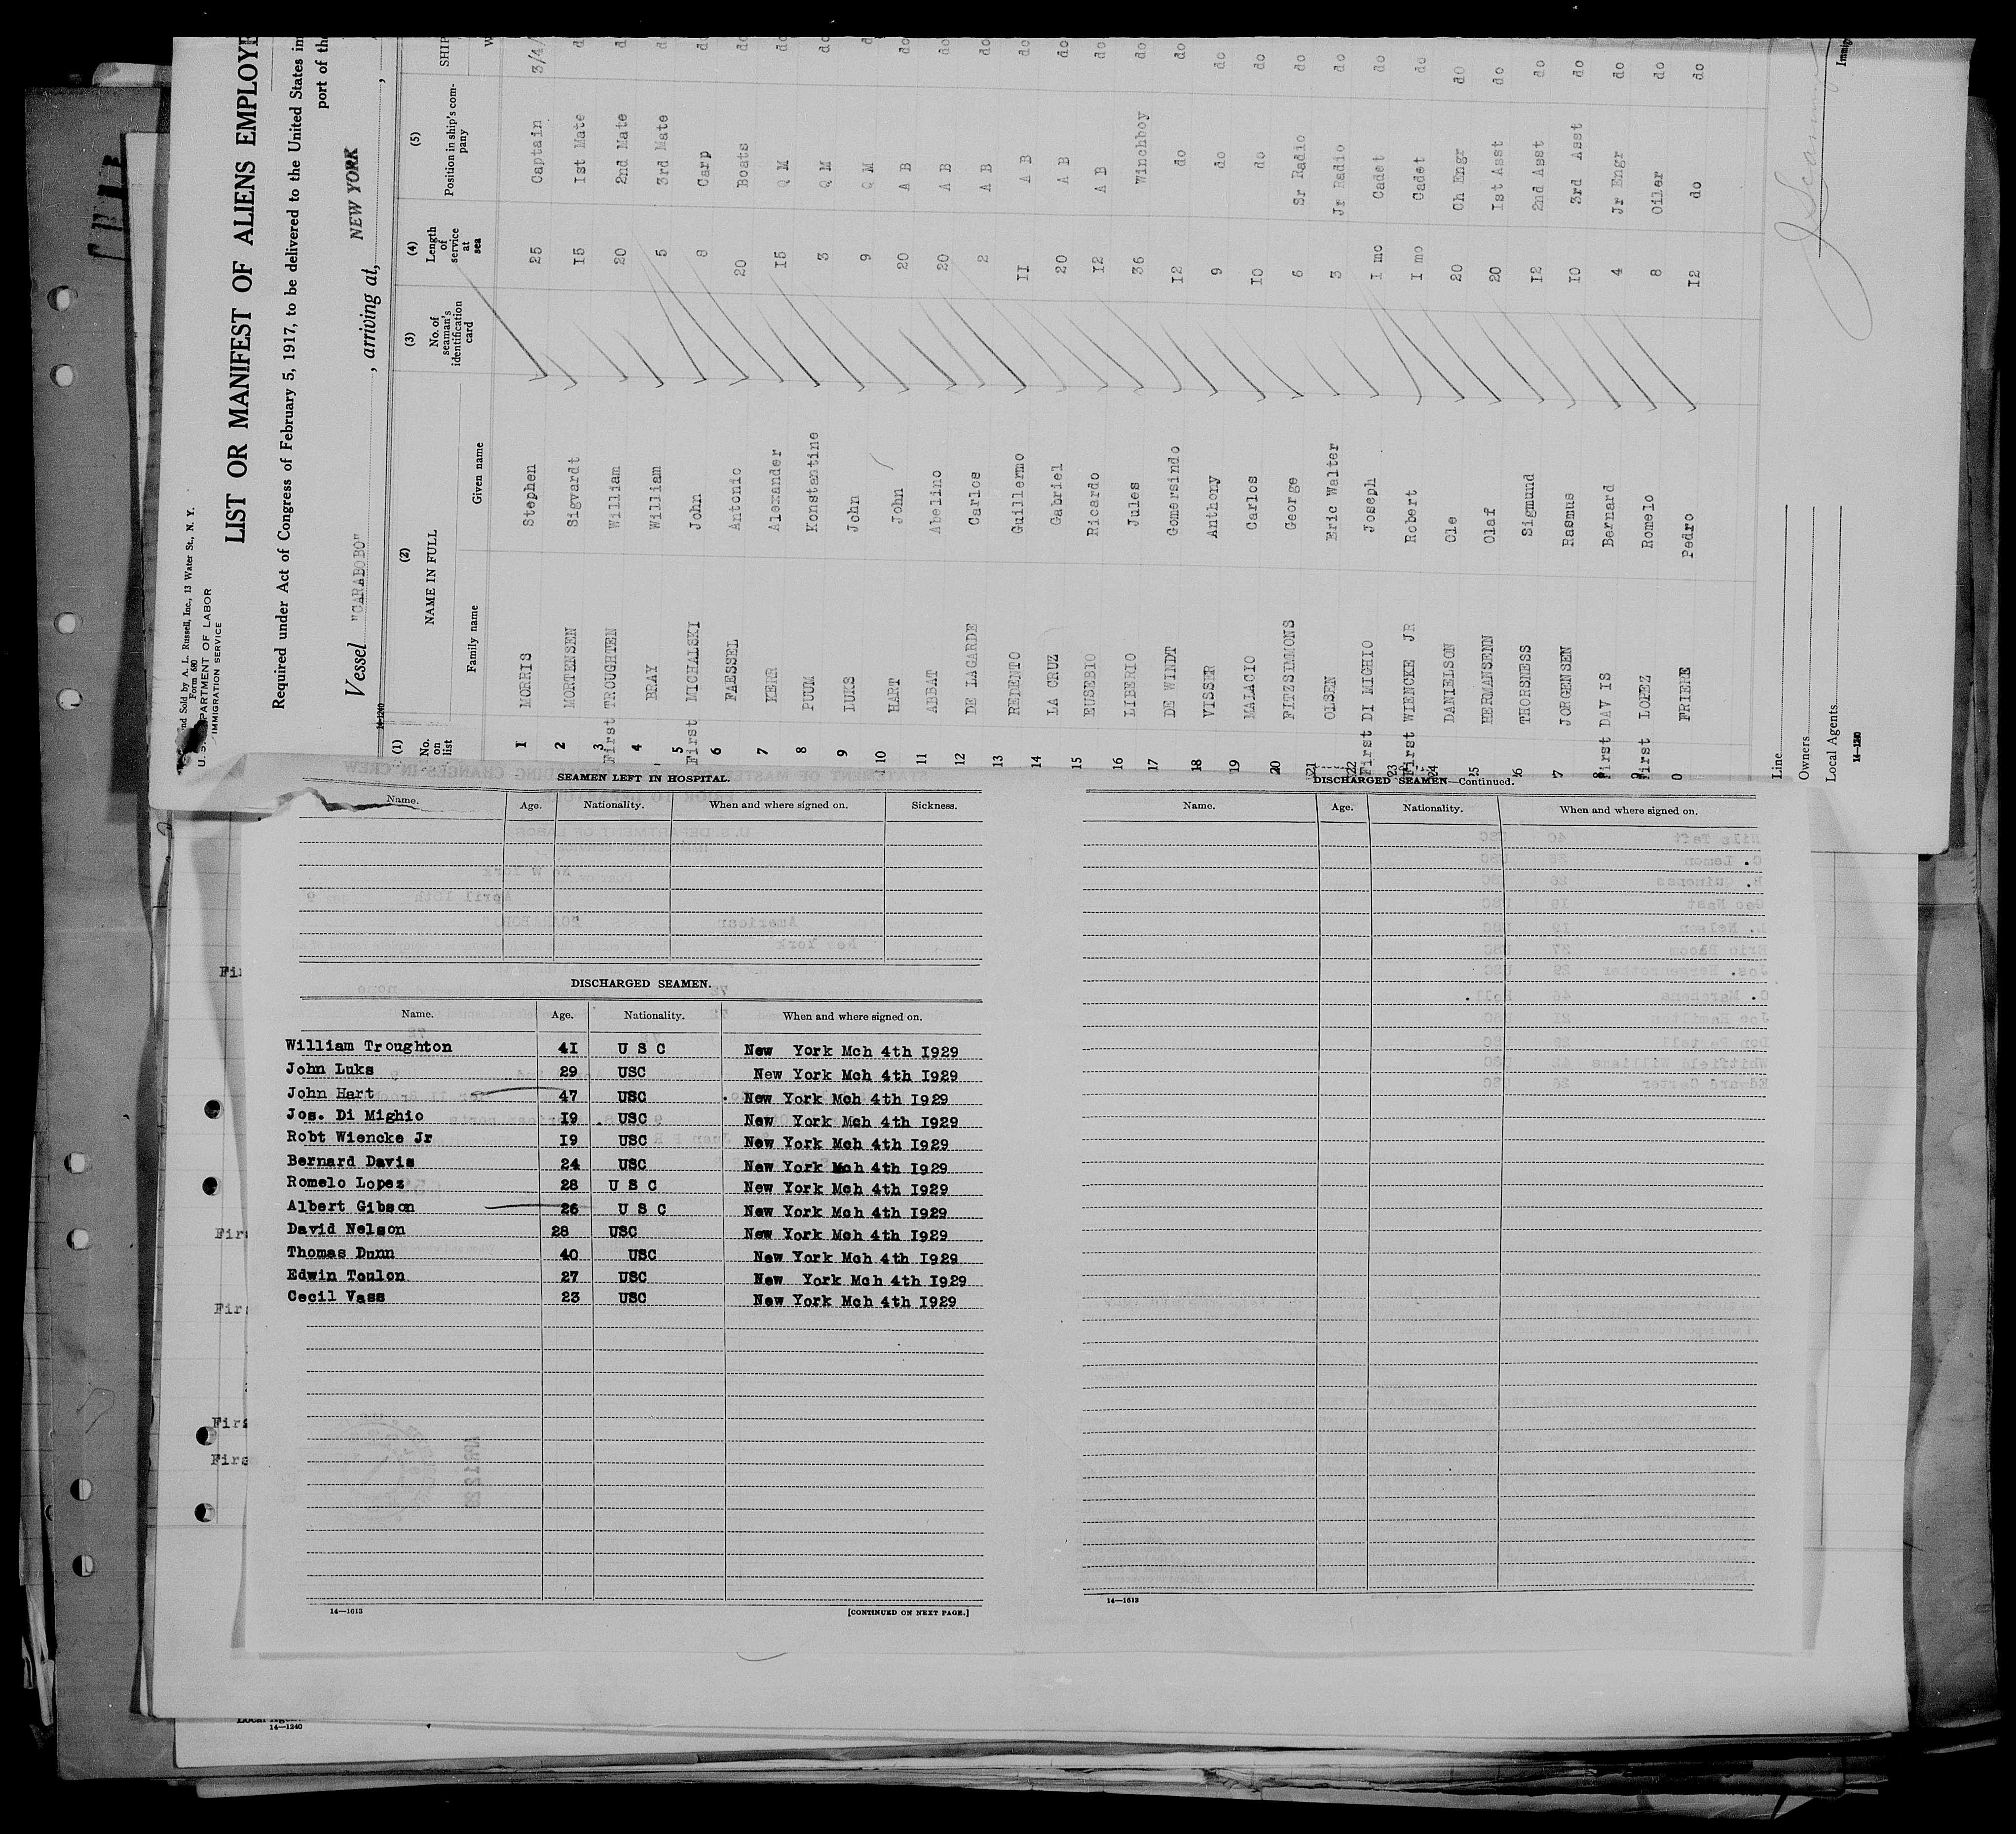 and Sold by A. L. Russell, Inc., 13 Water St., N. Y.
Form 680
U. S. DEPARTMENT OF LABOR
IMMIGRATION SERVICE
LIST OR MANIFEST OF ALIENS EMPLOYE
Required under Act of Congress of February 5, 1917, to be delivered to the United States im
port of the
Vessel "CARABOBO", arriving at, NEW YORK,
14-1240
(1) (2) (3) (4) (5)
No. on list NAME IN FULL No. of seaman's identification card Length of service at sea Position in ship's company SHIP
Family name Given name W
1 MORRIS Stephen 25 Captain 3/4/
2 MORTENSEN Sigvardt 15 1st Mate d
3 First TROUGHTEN William 20 2nd Mate d
4 BRAY William 5 3rd Mate d
5 First MICHALSKI John 8 Carp d
6 FAESSEL Antonio 20 Boats do
7 KERR Alexander 15 Q M do
8 PUUM Konstantine 3 Q M do
9 LUKS John 9 Q M d
10 HART John 20 A B do
11 ABBAT Abelino 20 A B do
12 DE LAGARDE Carlos 2 A B do
13 REDENTO Guillermo 11 A B do
14 LA CRUZ Gabriel 20 A B do
15 EUSEBIO Ricardo 12 A B do
16 LIBERIO Jules 36 Winchboy do
17 DE WINDT Gomersindo 12 do do
18 VISSER Anthony 9 do do
19 MALACIO Carlos 10 do do
20 FITZSIMMONS George 6 Sr Radio do
21 OLSEN Eric Walter 3 Jr Radio do
22 First DI MIGHIO Joseph 1 mo Cadet do
23 First WIENCKE JR Robert 1 mo Cadet do
24 DANIELSON Ole 20 Ch Engr do
5 HERMANSENN Olaf 20 1st Asst do
6 THORSNESS Sigmund 12 2nd Asst do
7 JORGENSEN Rasmus 10 3rd Asst do
8 First DAV IS Bernard 4 Jr Engr do
9 First LOPEZ Romelo 8 Oiler do
0 FRIERE Pedro 12 do do
Line
Owners
Local Agents
14-1240
Immigr
SEAMEN LEFT IN HOSPITAL.
Name. Age. Nationality. When and where signed on. Sickness.
DISCHARGED SEAMEN.
Name. Age. Nationality. When and where signed on.
William Troughton 41 U S C New York Mch 4th 1929
John Luks 29 USC New York Mch 4th 1929
John Hart 47 USC New York Mch 4th 1929
Jos. Di Mighio 19 USC New York Mch 4th 1929
Robt Wiencke Jr 19 USC New York Mch 4th 1929
Bernard Davis 24 USC New York Mch 4th 1929
Romelo Lopez 28 U S C New York Mch 4th 1929
Albert Gibson 26 U S C New York Mch 4th 1929
David Nelson 28 USC New York Mch 4th 1929
Thomas Dunn 40 USC New York Mch 4th 1929
Edwin Toulon 27 USC New York Mch 4th 1929
Cecil Vass 23 USC New York Mch 4th 1929
14—1613
[CONTINUED ON NEXT PAGE.]
DISCHARGED SEAMEN—Continued.
Name. Age. Nationality. When and where signed on.
14—1613
Fir
Fir
Firs
Firs
Firs
14—1240